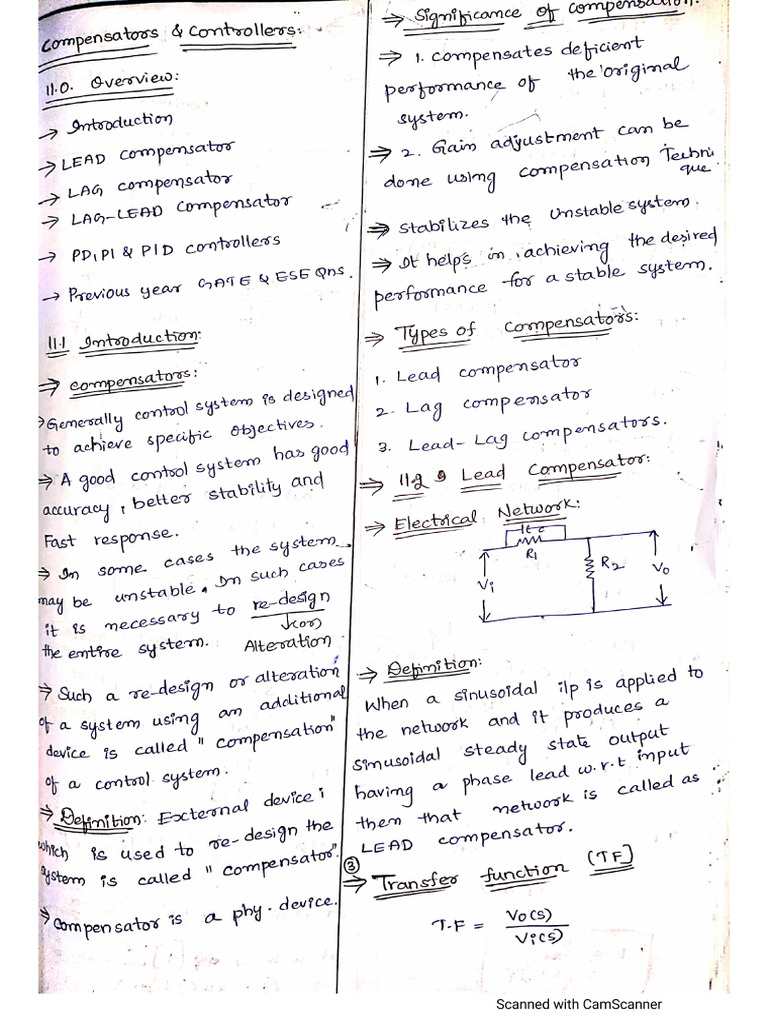 Compensators & Controllers:
11.0. Overview:
→ Introduction
→ LEAD compensator
→ LAG compensator
→ LAG-LEAD compensator
→ PD, PI & PID controllers
→ Previous year GATE & ESE Qns.
11.1 Introduction:
⇒ compensators:
→ Generally control system is designed
to achieve specific objectives.
⇒ A good control system has good
accuracy, better stability and
Fast response.
⇒ In some cases the system
may be unstable. In such cases
it is necessary to re-design
(or)
the entire system. Alteration
⇒ Such a re-design or alteration
of a system using an additional
device is called "compensation"
of a control system.
⇒ Definition: External device
which is used to re-design the
system is called "compensator".
⇒ Compensator is a phy. device.
⇒ Significance of compensation:
⇒ 1. compensates deficient
performance of the original
system.
⇒ 2. Gain adjustment can be
done using compensation Techni
que.
⇒ Stabilizes the Unstable system.
⇒ It helps in achieving the desired
performance for a stable system.
⇒ Types of Compensators:
1. Lead compensator
2. Lag compensator
3. Lead-Lag compensators.
⇒ 11.2 Lead Compensator:
⇒ Electrical Network:
R1
R2
Vi
Vo
⇒ Definition:
When a sinusoidal i/p is applied to
the network and it produces a
sinusoidal steady state output
having a phase lead w.r.t input
then that network is called as
LEAD compensator.
③
⇒ Transfer function [TF]
T.F = Vo(s)
Vi(s)
Scanned with CamScanner